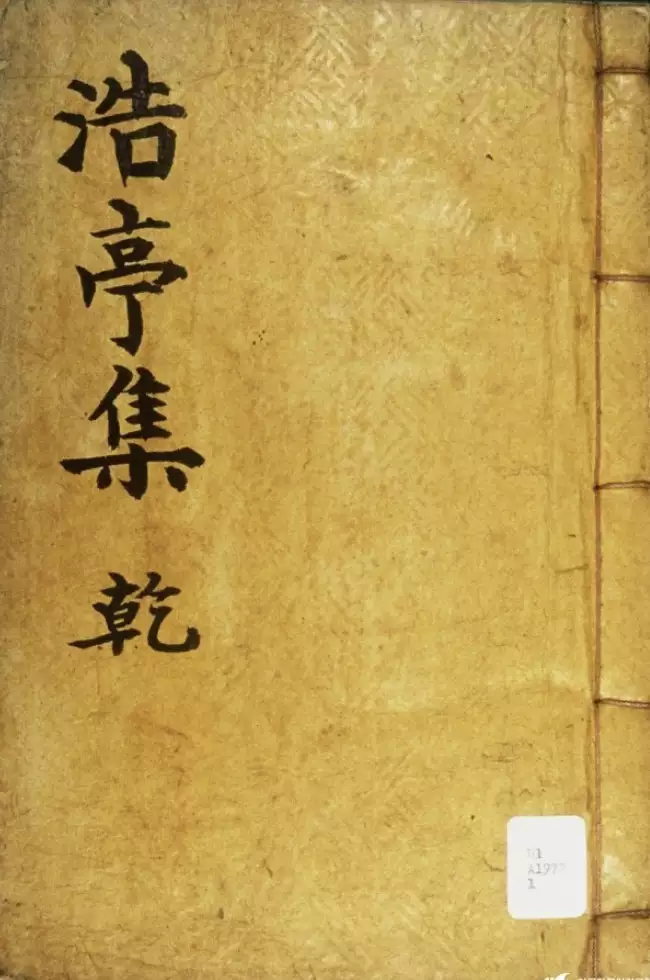 浩亭集 乾
D1
A197
1